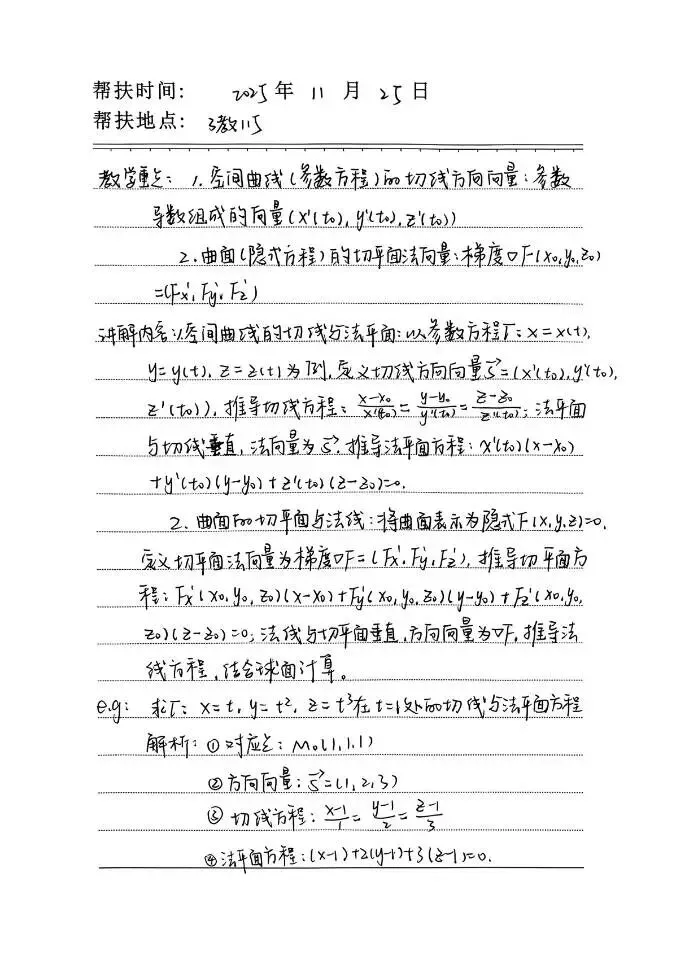 帮扶时间: 2025年 11 月 25日
帮扶地点: 3教115
教学重点: 1.空间曲线(参数方程)的切线方向向量:参数
导数组成的向量(x'(t₀), y'(t₀), z'(t₀))
2.曲面(隐式方程)的切平面法向量:梯度∇F(x₀,y₀,z₀)
=(Fx', Fy', Fz')
讲解内容:1.空间曲线的切线与法平面:以参数方程Γ: x=x(t),
y=y(t), z=z(t)为例,定义切线方向向量s→=(x'(t₀), y'(t₀),
z'(t₀)),推导切线方程: (x-x₀)/x'(t₀) = (y-y₀)/y'(t₀) = (z-z₀)/z'(t₀);法平面
与切线垂直,法向量为s→,推导法平面方程: x'(t₀)(x-x₀)
+y'(t₀)(y-y₀)+z'(t₀)(z-z₀)=0.
2.曲面的切平面与法线:将曲面表示为隐式F(x,y,z)=0,
定义切平面法向量为梯度∇F=(Fx', Fy', Fz'),推导切平面方
程: Fx'(x₀,y₀,z₀)(x-x₀)+Fy'(x₀,y₀,z₀)(y-y₀)+Fz'(x₀,y₀,
z₀)(z-z₀)=0;法线与切平面垂直,方向向量为∇F,推导法
线方程,结合球面计算。
e.g: 求Γ: x=t, y=t², z=t³在t=1处的切线与法平面方程
解析:①对应点: M₀(1,1,1)
②方向向量: s→=(1,2,3)
③切线方程: (x-1)/1 = (y-1)/2 = (z-1)/3
④法平面方程:(x-1)+2(y-1)+3(z-1)=0.